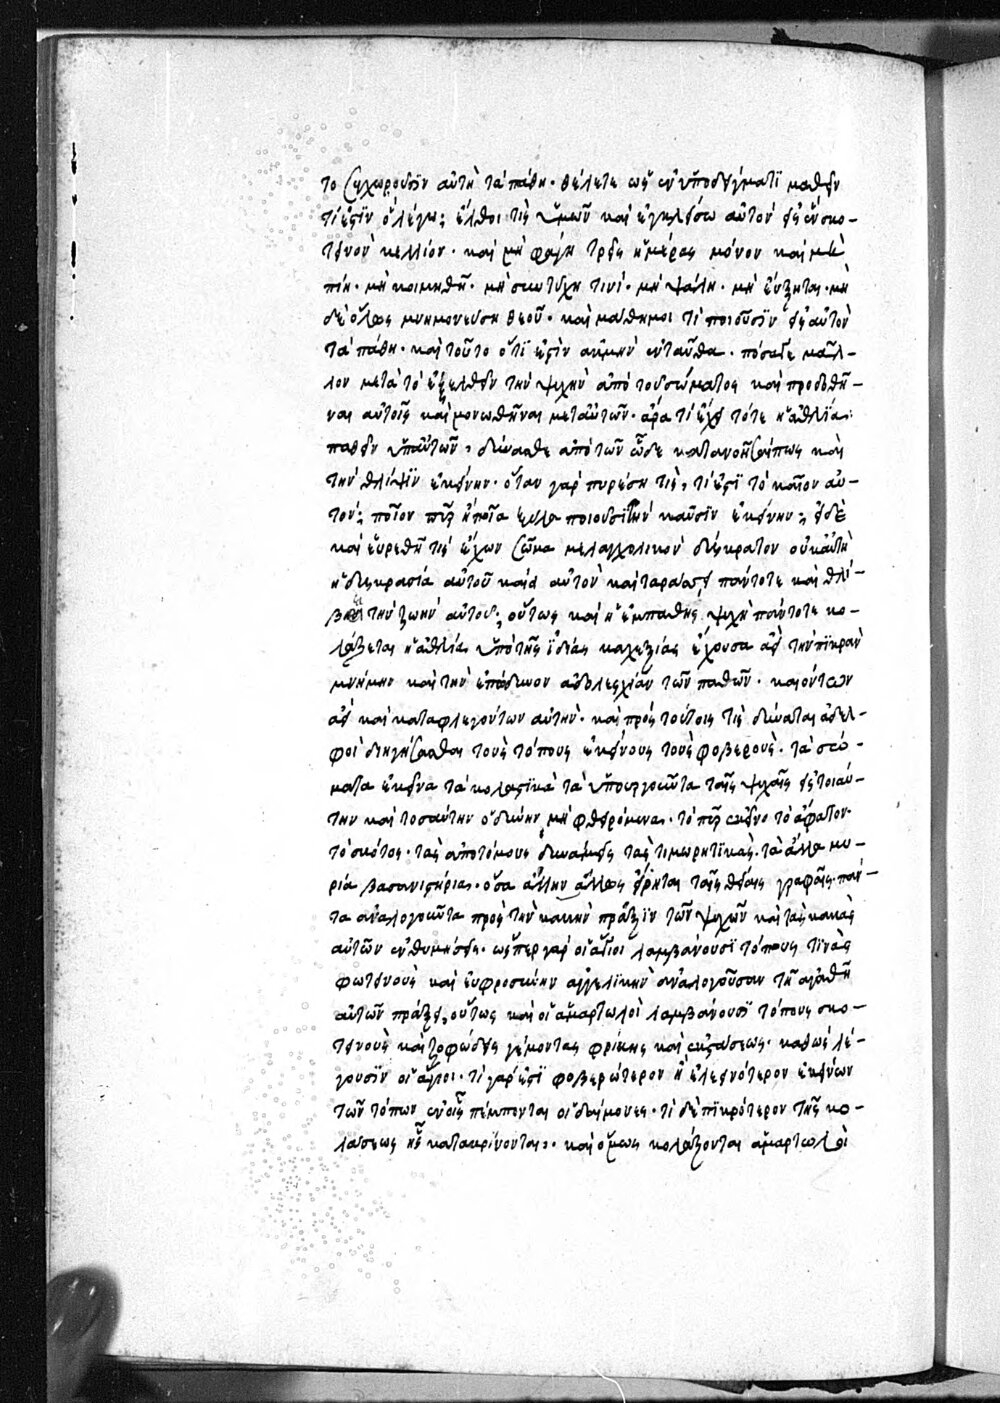 το συγχωροῦσϊν αὐτὴ τὰ πάθη· θέλετε ὡς ἐν ὑποδείγματϊ μαθεῖν
τί ἐστϊν ὃ λέγω; ἔλθοι τὶς ὑμῶν καὶ ἐγκλείσω αὐτὸν εἰς ἓν σκο-
τεινὸν κελλίον· καὶ μὴ φάγη τρεῖς ἡμέρας μόνον καὶ μὴ
πίη· μὴ κοιμηθῆ· μὴ συντύχη τινί· μὴ ψάλη· μὴ εὔξηται· μὴ
δὲ ὅλως μνημονεύση θεοῦ· καὶ μανθάνει τί ποιοῦσϊν εἰς αὐτὸν
τὰ πάθη· καὶ τοῦτο ὅτϊ ἐστὶν ἀκμὴν ἐνταῦθα· πόσω δὲ μᾶλ-
λον μετὰ τὸ ἐξελθεῖν τὴν ψυχὴν ἀπὸ τοῦ σώματος καὶ προδοθῆ-
ναι αὐτοῖς καὶ μονωθῆναι μετ' αὐτῶν· ἆρα τί ἔχει τότε ἡ ἀθλία
παθεῖν ὑπ' αὐτῶν, δύνασθε ἀπὸ τῶν ὧδε κατανοῆσαι πως καὶ
τὴν θλίψϊν ἐκείνην· ὅταν γὰρ πυρέση τὶς, τί ἐστϊ τὸ καῖον αὐ-
τόν; ποῖον πῦρ ἢ ποῖα ξύλα ποιοῦσι τὴν καῦσϊν ἐκείνην; εἰ δὲ
καὶ εὑρεθῆ τὶς ἔχων σῶμα μελαγχολικὸν δύσκρατον οὐκ αὐτὴ
ἡ δυσκρασία αὐτοῦ καίει αὐτὸν καὶ ταράσσει πάντοτε καὶ θλί-
βει τὴν ζωὴν αὐτοῦ; οὕτως καὶ ἡ ἐμπαθὴς ψυχὴ πάντοτε κο-
λάζεται ἡ ἀθλία ὑπὸ τῆς ἰδίας καχεξίας ἔχουσα ἀεὶ τὴν πϊκρὰν
μνήμην καὶ τὴν ἐπώδυνον ἀδολεσχίαν τῶν παθῶν· καιόντων
ἀεὶ καὶ καταφλεγόντων αὐτήν· καὶ πρὸς τούτοις τὶς δύναται ἀδελ-
φοὶ διηγήσασθαι τοὺς τόπους ἐκείνους τοὺς φοβερούς· τὰ σώ-
ματα ἐκεῖνα τὰ κολαστϊκὰ τὰ ὑπουργοῦντα ταῖς ψυχαῖς εἰς τοιαύ-
την καὶ τοσαύτην ὀδύνην, μὴ φθειρόμενα· τὸ πῦρ ἐκεῖνο τὸ ἄφατον·
τὸ σκότος· τὰς ἀποτόμους δυνάμεις τὰς τιμωρητϊκάς· τὰ ἄλλα μυ-
ρία βασανιστήρια· ὅσα ἄλλην ἄλλως εἴρηται ταῖς θείαις γραφαῖς· πάν-
τα ἀναλογοῦντα πρὸς τὴν κακὴν πρᾶξϊν τῶν ψυχῶν καὶ τὰς κακὰς
αὐτῶν ἐνθυμήσεις· ὥσπερ γὰρ οἱ ἅγιοι λαμβάνουσϊ τόπους τϊνὰς
φωτεινοὺς καὶ εὐφροσύνην ἀγγελϊκὴν ἀναλογοῦσαν τῆ ἀγαθῆ
αὐτῶν πράξει, οὕτως καὶ οἱ ἁμαρτωλοὶ λαμβάνουσϊ τόπους σκο-
τεινοὺς καὶ ζοφώδεις γέμοντας φρίκης καὶ ἐκστάσεως· καθὼς λέ-
γουσϊν οἱ ἅγιοι· τί γὰρ ἐστϊ φοβερώτερον ἢ ἐλεεινότερον ἐκείνων
τῶν τόπων ἐν οἷς πέμπονται οἱ δαίμονες· τί δὲ πϊκρότερον τῆς κο-
λάσεως ἧς κατακρίνονται· καὶ ὅμως κολάζονται ἁμαρτωλοὶ